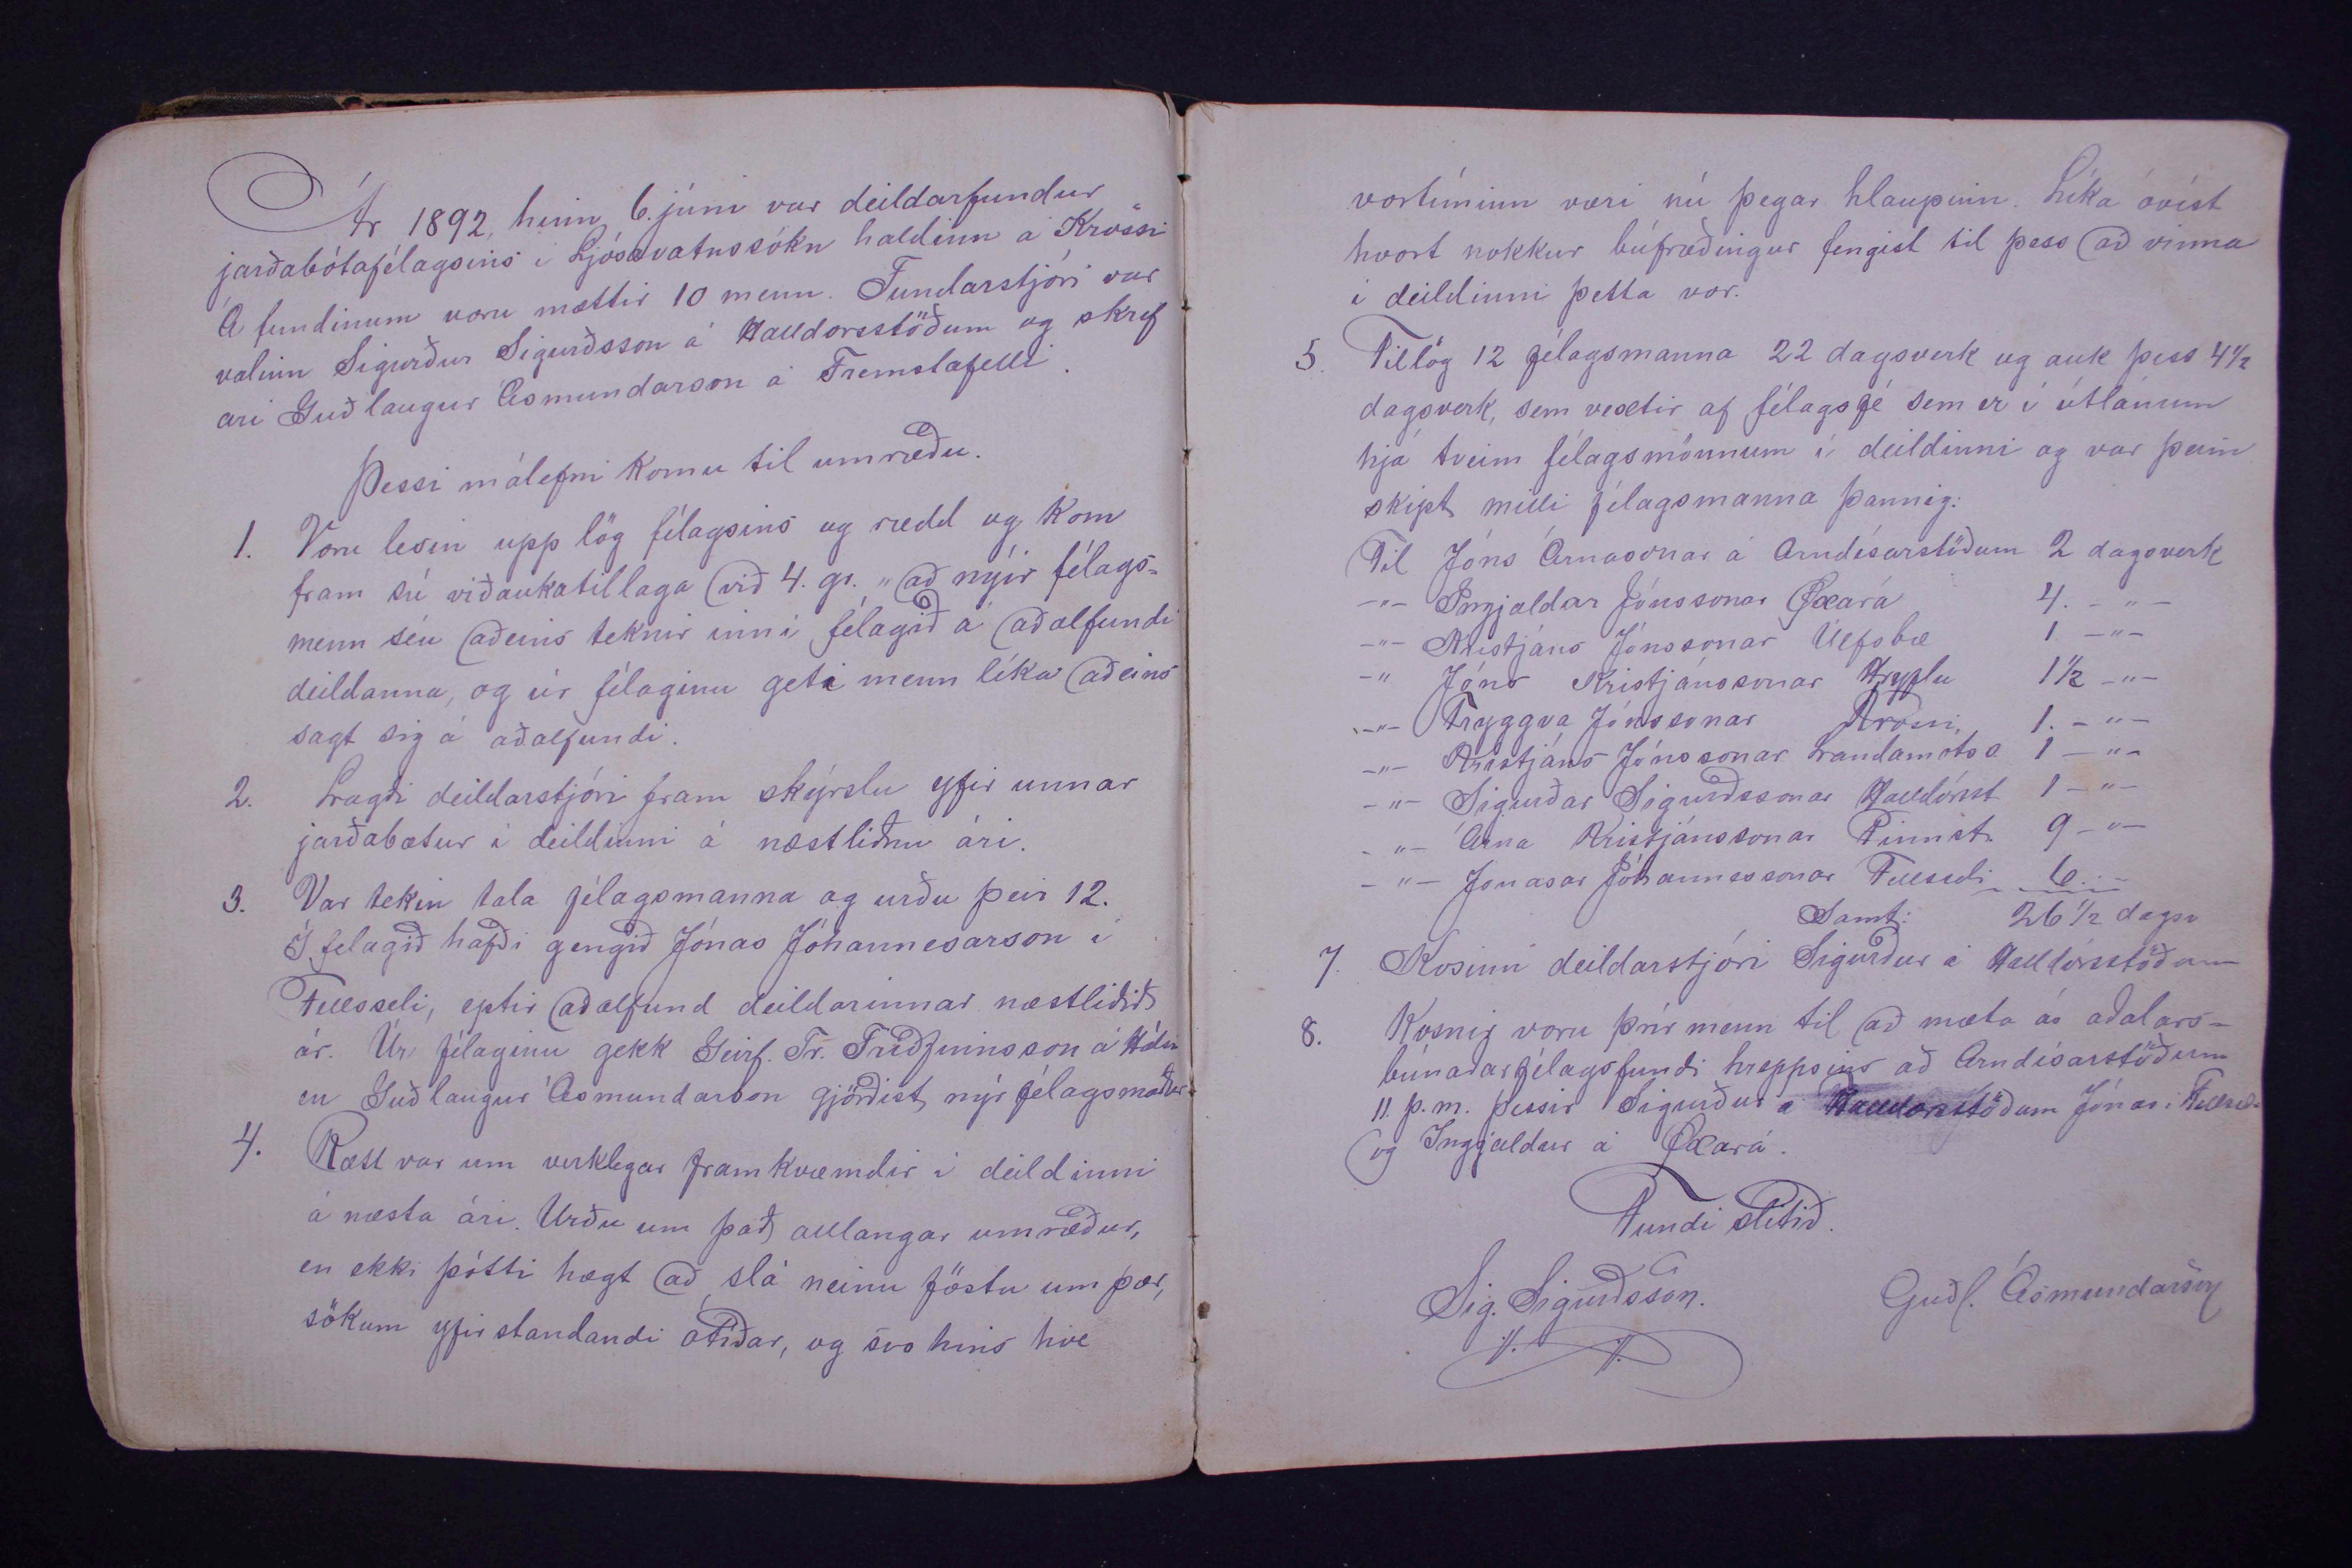 Ár 1892, hinn 6. júni var deildarfundur
jarðabótafélagsins i Ljósavatnssókn haldinn á Krossi
Á fundinum voru mættir 10 menn. Fundarstjóri var
valinn Sigurður Sigurðsson á Halldorsstöðum og skrif
ari Guðlaugur Ásmundarson á Fremstafelli.
Þessi málefni komu til umræðu.
1. Voru lesin upp lög félagsins og rædd og kom
fram sú viðaukatillaga við 4. gr. „að nýir félags-
menn séu aðeins teknir inn i félagið á aðalfundi
deildanna, og úr félaginu geti menn lika aðeins
sagt sig á aðalfundi.
2. Lagði deildarstjóri fram skýrslu yfir unnar
jarðabætur i deildinni á næstliðnu ári.
3. Var tekin tala félagsmanna og urðu þeir 12.
Í felagið hafði gengið Jónas Jóhannesarson i
Fellsseli, eptir aðalfund deildarinnar næstliðið
ár. Úr félaginu gekk Geirf. Tr. Friðfinnsson á Hóli
en Guðlaugur Ásmundarson gjörðist nýr félagsmaður.
4. Rætt var um verklegar framkvæmdir i deildinni
á næsta ári. Urðu um það allangar umræður,
en ekki þótti hægt að slá neinu föstu um þær,
sökum yfirstandandi ótiðar, og svo hins hve
vortiminn væri nú þegar hlaupinn. Lika óvist
hvort nokkur búfræðingur fengist til þess að vinna
i deildinni þetta vor.
5. Tillög 12 félagsmanna 22 dagsverk og auk þess 4 1/2
dagsverk, sem vextir af félagsfé sem er i útlánum
hjá tveim félagsmönnum i deildinni og var þeim
skipt milli félagsmanna þannig:
Til Jóns Árnasonar á Arndisarstöðum 2 dagsverk
-"- Ingjaldar Jónssonar Øxará 4. -"-
-"- Kristjáns Jónssonar Úlfsbæ 1 -"-
-" Jóns Kristjánssonar Hryflu 1 1/2 -"-
-"- Tryggva Jónssonar Krossi 1. -"-
-"- Kristjáns Jónssonar Landamóts 1 -"-
-"- Sigurðar Sigurðssonar Halldórsst 1 -"-
-"- Árna Kristjánssonar Finnst. 9 -"-
-"- Jónasar Jóhannessonar Fellseli 6 -"-
Samt: 26 1/2 dagsv
7. Kosinn deildarstjóri Sigurður á Halldórsstöðum
8. Kosnir voru þrir menn til að mæta á aðalars-
búnaðarfélagsfundi hreppsins að Arndisarstöðum
11. þ.m. þessir Sigurður á Halldorsstöðum Jónas i Fellsel.
og Ingjaldur á Øxará.
Fundi slitið.
Sig. Sigurðsson. Guðl. Ásmundarson